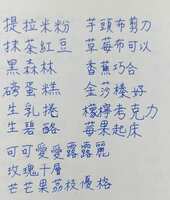 提拉米粉
抹茶紅豆
黑森林
磅蛋糕
生乳捲
生碧酪
可可愛愛露露麗
玫瑰千層
芒芒果荔枝優格
芋頭布剪刀
草莓布可以
香蕉巧合
金莎棒好
檸檬考克力
莓果起床